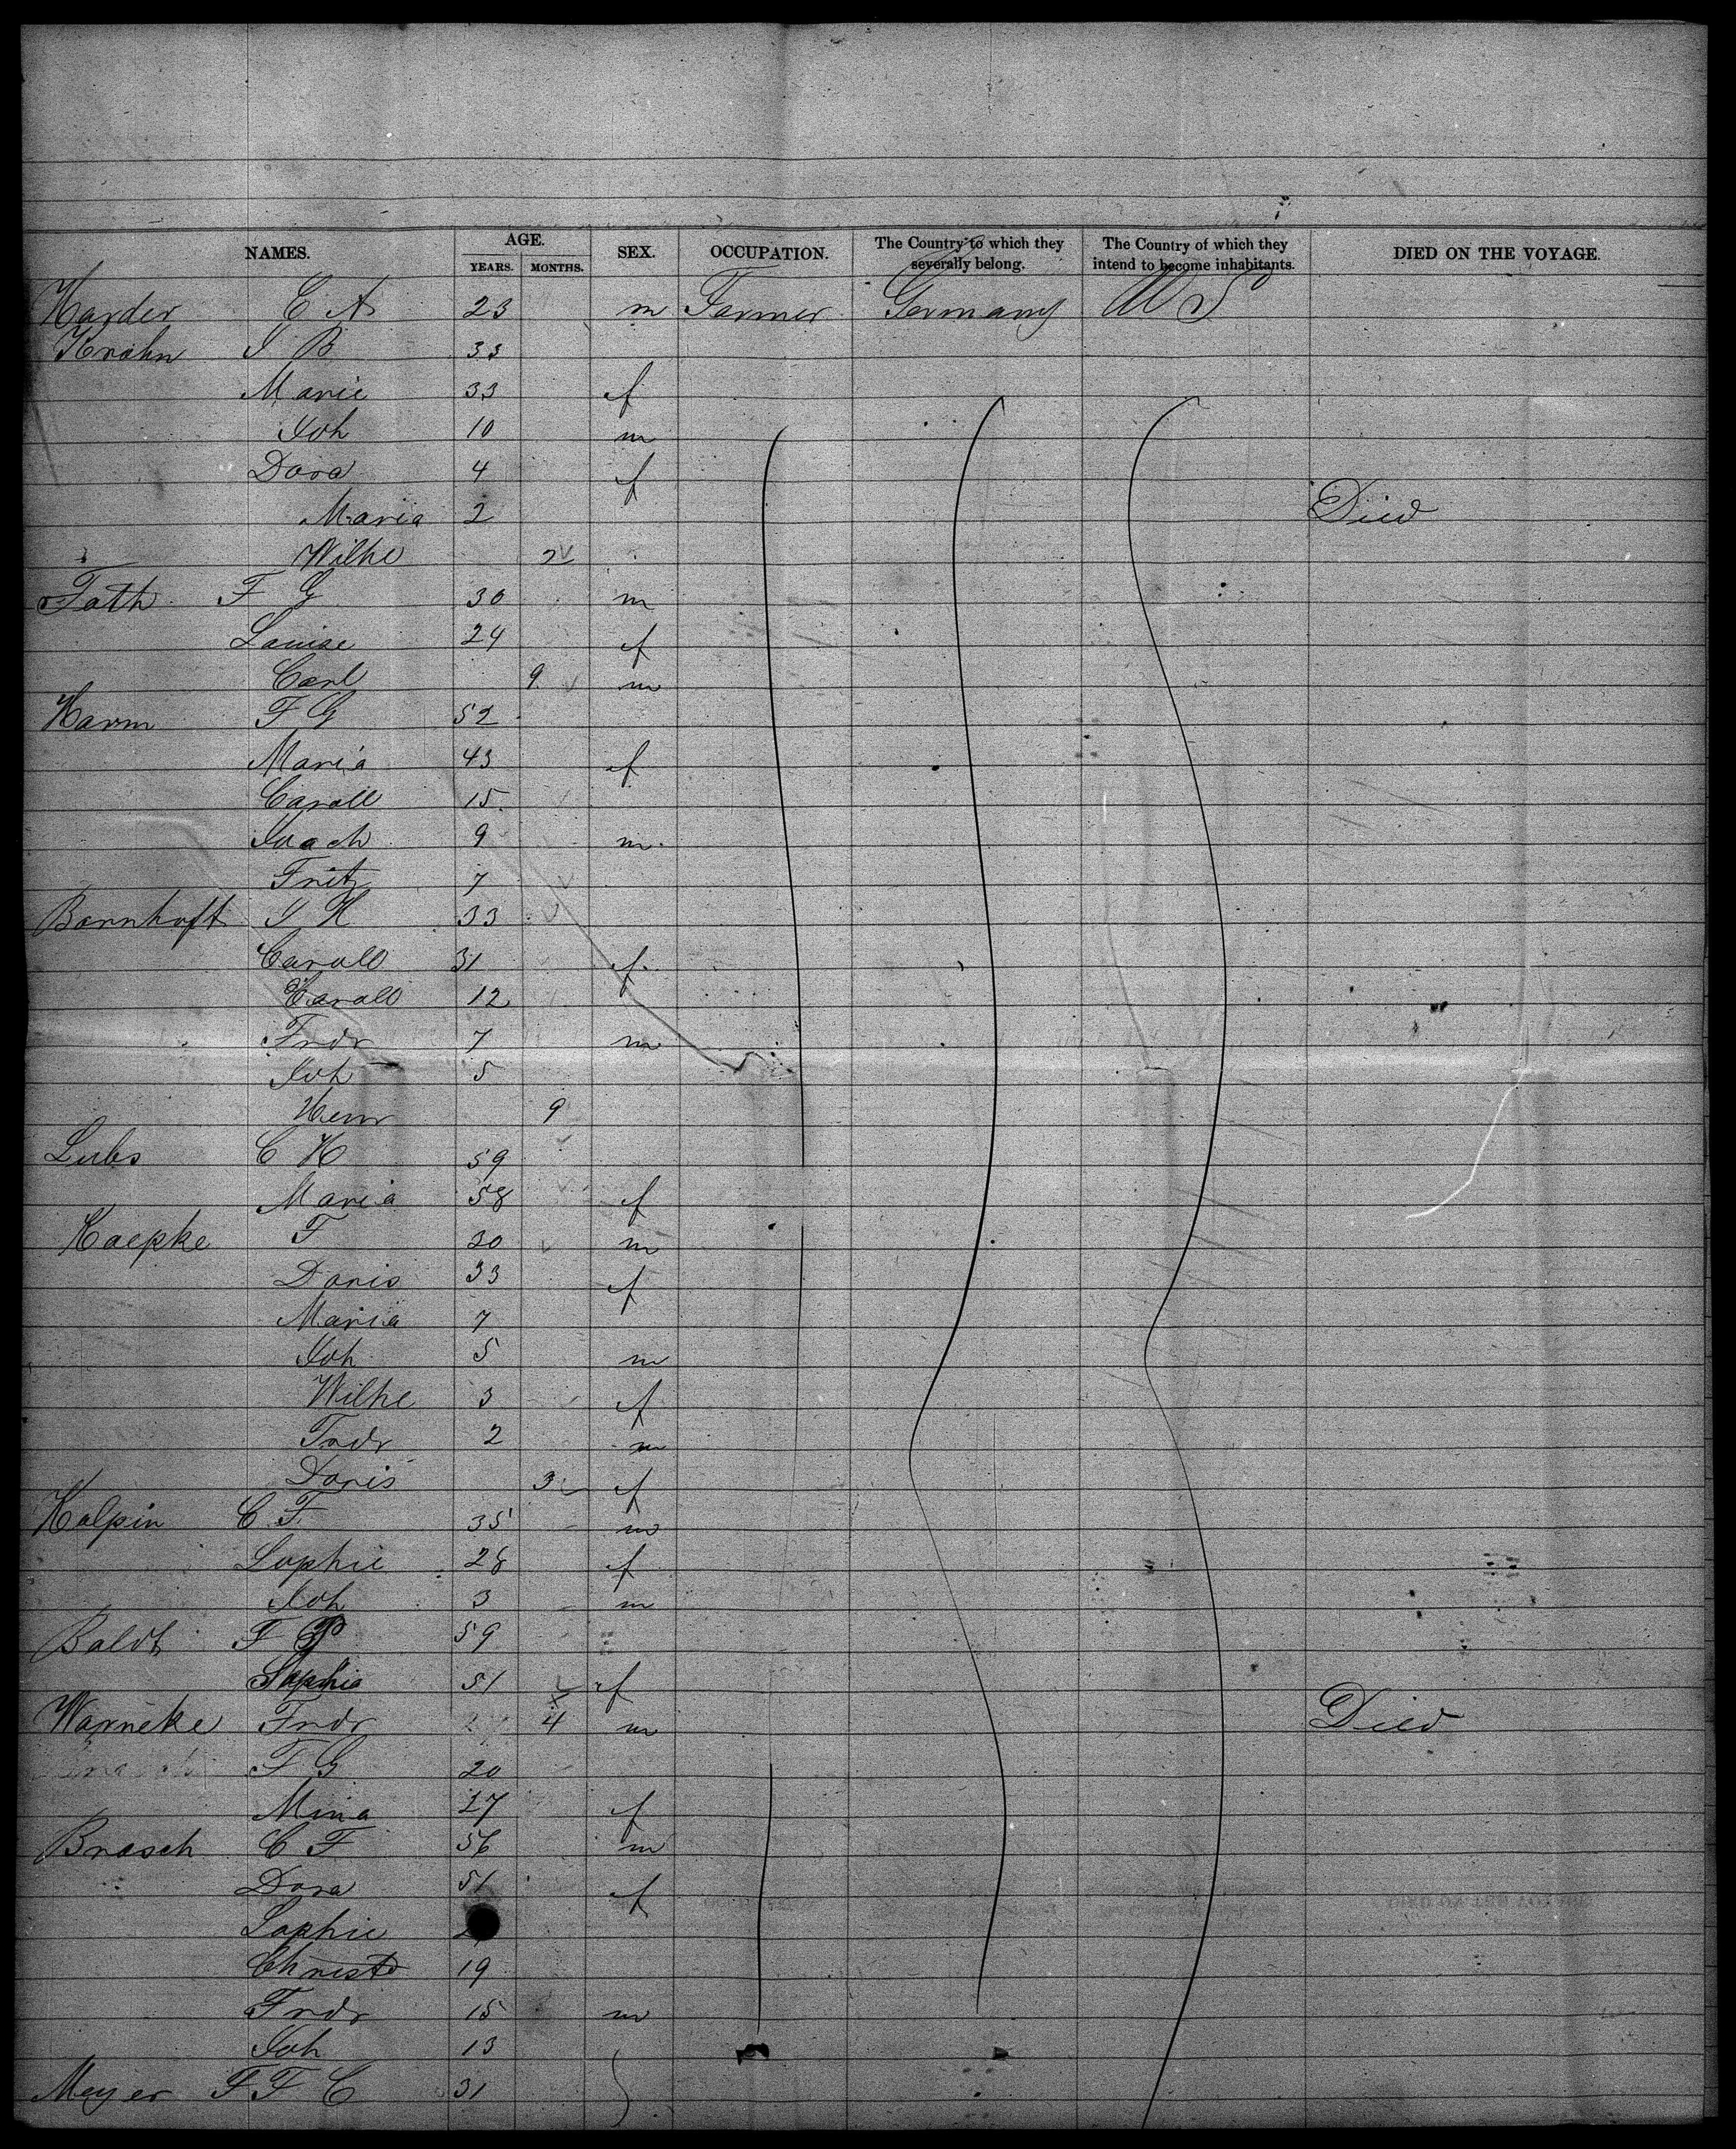 NAMES. AGE. SEX. OCCUPATION. The Country to which they severally belong. The Country of which they intend to become inhabitants. DIED ON THE VOYAGE.
YEARS. MONTHS.
Harder C A 23 m Farmer Germany U S
Krohn J B 33
Marie 33 f
Joh 10 m
Dora 4 f
Maria 2 Died
Wilhe 2
Fath F G 30 m
Louise 24 f
Carl 9 m
Harm F G 52
Maria 43 f
Caroll 15
Joach 9 m
Fritz 7
Barnhoft J H 33
Caroll 31 f
Caroll 12
Frdr 7 m
Joh 5
Henr 9
Lubs C H 59
Maria 58 f
Koepke F 30 m
Doris 33 f
Maria 7
Joh 5 m
Wilhe 3 f
Frdr 2 m
Doris 3 f
Kolpin C F 35 m
Sophie 28 f
Joh 3 m
Boldt F 59
Sophia 51 f
Warneke Frdr 4 m Died
F G 20
Mina 27 f
Brasch C F 56 m
Dora 51 f
Sophie
Christ 19
Frdr 15 m
Joh 13
Meyer F F C 31